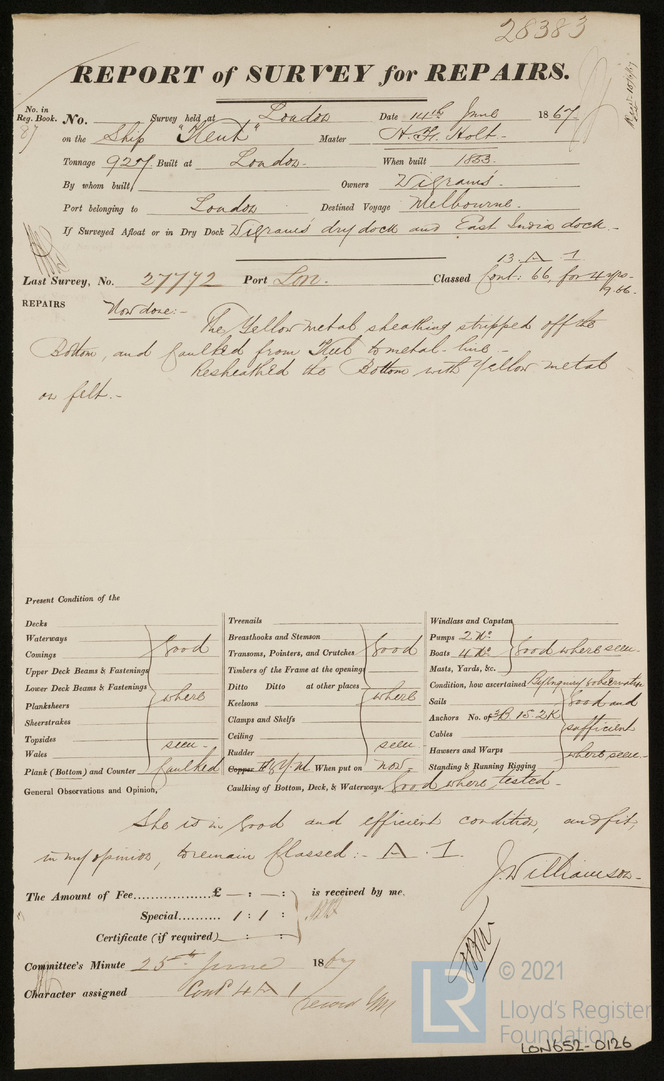 28383
REPORT of SURVEY for REPAIRS.
No. in Reg. Book. 87 No. Survey held at London Date 14th June 1867
on the Ship "Kent" Master H. F. Holt
Tonnage 927 Built at London When built 1853
By whom built Owners Wigram's
Port belonging to London Destined Voyage Melbourne
If Surveyed Afloat or in Dry Dock Wigram's dry dock and East India dock.
13. A 1
Last Survey, No. 27772 Port Lon. Classed Cont: 66 for 4 yrs
9.66.
REPAIRS Now done:-
The Yellow metal sheathing stripped off the
Bottom, and Caulked from Keel to metal-line.-
Resheathed the Bottom with Yellow metal
on felt.-
Present Condition of the
Decks
Waterways
Comings Good
Upper Deck Beams & Fastenings
Lower Deck Beams & Fastenings where
Planksheers
Sheerstrakes
Topsides seen-
Wales
Plank (Bottom) and Counter Caulked
Treenails
Breasthooks and Stemson
Transoms, Pointers, and Crutches Good
Timbers of the Frame at the openings
Ditto Ditto at other places where
Keelsons
Clamps and Shelfs
Ceiling seen
Rudder
Copper When put on now
Windlass and Capstan
Pumps 2 No
Boats 4 No Good where seen
Masts, Yards, &c.
Condition, how ascertained By Inquiry & observation
Sails Good and
Anchors No. of 3B. 1S. 2K
Cables sufficient
Hawsers and Warps where seen-
Standing & Running Rigging
General Observations and Opinion, Caulking of Bottom, Deck, & Waterways. Good where tested-
She is in Good and efficient condition, and fit,
in my opinion, to remain Classed:- A.1.
J. Williamson
The Amount of Fee £ - : - : is received by me.
Special 1 : 1 :
Certificate (if required) : :
Committee's Minute 25th June 1867
Character assigned Contd 4 A 1
record YM
LR © 2021
Lloyd's Register
Foundation
LON652-0126